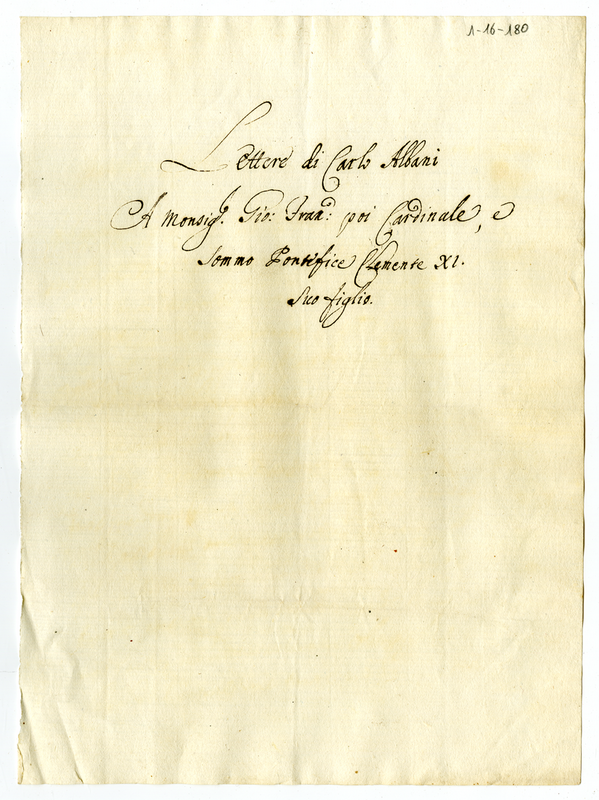 1-16-180
Lettere di Carlo Albani
A Monsig.r Gio: Fran.co: poi Cardinale, e
Sommo Pontefice Clemente XI.
Suo figlio.